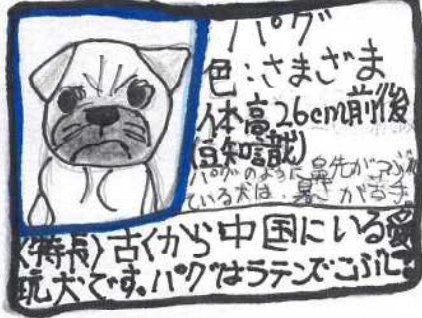 パグ
色:さまざま
体高26cm前後
(豆知識)
パグのように鼻先がつぶれ
ている犬は、暑さが苦手
〈特長〉古くから中国にいる愛
玩犬です。パグはラテンでこぶし